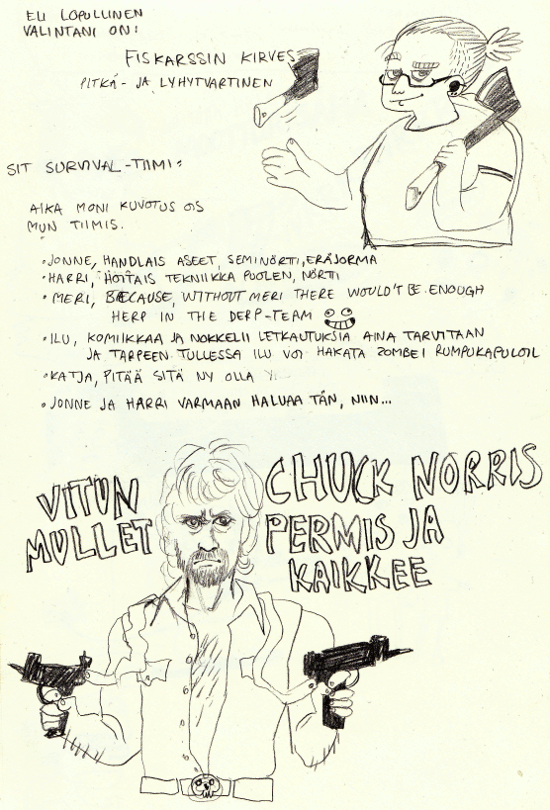 ELI LOPULLINEN
VALINTANI ON:
FISKARSSIN KIRVES
PITKÄ- JA LYHYTVARTINEN
SIT SURVIVAL-TIIMI:
AIKA MONI KUVOTUS OIS
MUN TIIMIS.
•JONNE, HANDLAIS ASEET, SEMINÖRTTI, ERÄJORMA
•HARRI, HOITAIS TEKNIIKKA PUOLEN, NÖRTTI
•MERI, BECAUSE, WITHOUT MERI THERE WOULD'T BE ENOUGH
HERP IN THE DERP-TEAM
•ILU, KOMIIKKAA JA NOKKELII LETKAUTUKSIA AINA TARVITAAN
JA TARPEEN TULLESSA ILU VOI HAKATA ZOMBEI RUMPUKAPULOIL
•KATJA, PITÄÄ SITÄ NY OLLA
•JONNE JA HARRI VARMAAN HALUAA TÄN, NIIN...
VITUN CHUCK NORRIS
MULLET PERMIS JA
KAIKKEE